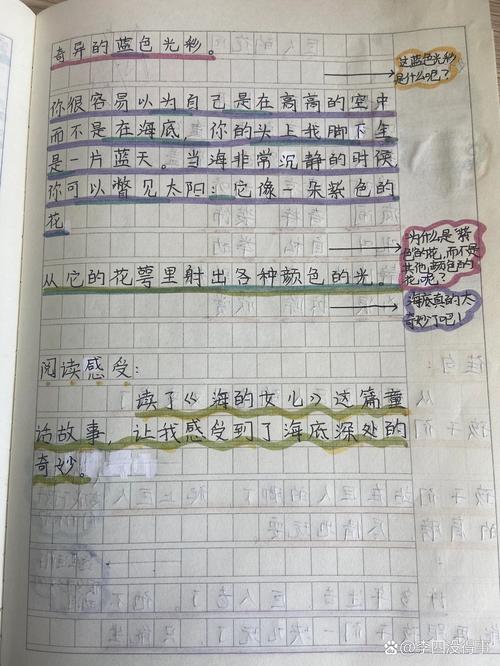 奇异的蓝色光彩。
这蓝色光彩
是什么呢？
你很容易以为自己是在高高的空中
而不是在海底，你的头上我脚下全
是一片蓝天。当海非常沉静的时候
你可以瞥见太阳：它像一朵紫色的
花
为什么是“紫
色的花，而不是
其他颜色的
花”呢？
从它的花萼里射出各种颜色的光。
海底真的太
奇妙了吧！
阅读感受：
读了《海的女儿》这篇童
话故事，让我感受到了海底深处的
奇妙。
@李四没得事